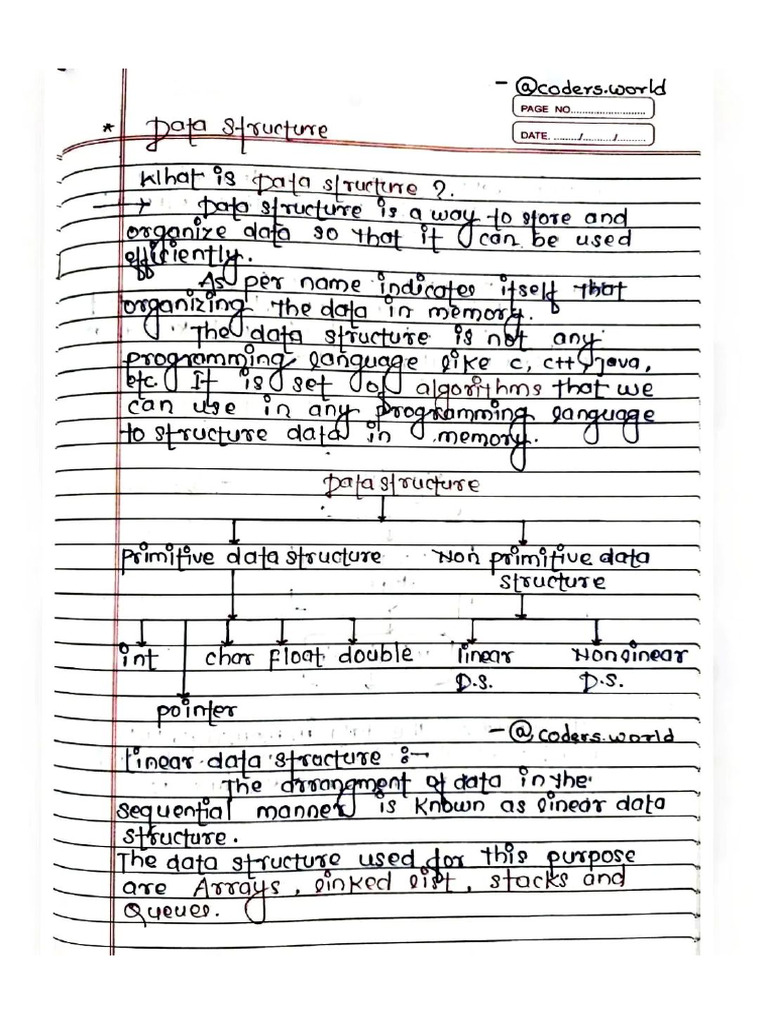 - @coders.world
PAGE NO..........................
* Data structure
DATE. ........./........./.........
What is Data structure ?.
→ Data structure is a way to store and
organize data so that it can be used
efficiently.
As per name indicates itself that
organizing the data in memory.
The data structure is not any
programming language like c, c++, java,
etc It is set of algorithms that we
can use in any programming language
to structure data in memory.
Data structure
Primitive data structure Non primitive data
structure
int char float double linear Nonlinear
D.S. D.S.
pointer
- @coders.world
Linear data structure :-
The arrangment of data in the
sequential manner is known as linear data
structure.
The data structure used for this purpose
are Arrays, linked list, stacks and
Queues.